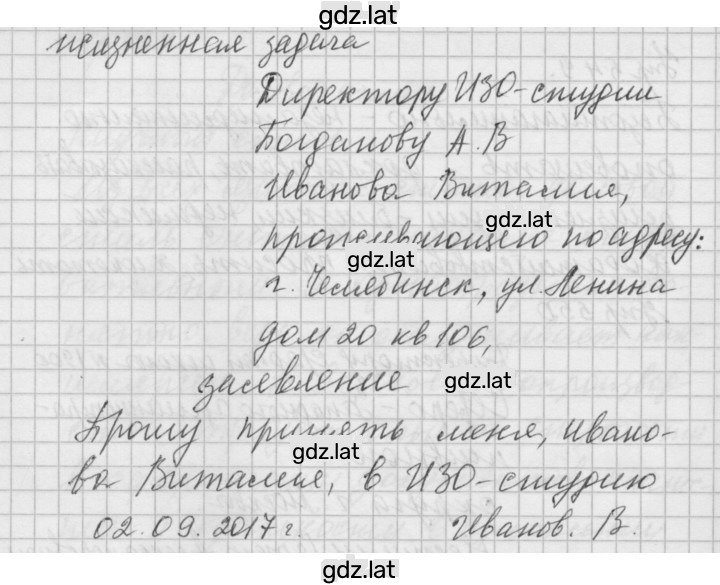 gdz.lat
жизненная задача
Директору ИЗО-студии
Богданову А.В
Иванова Виталия,
gdz.lat
проживающего по адресу:
gdz.lat
г. Челябинск, ул. Ленина
дом 20 кв 106,
заявление
gdz.lat
Прошу принять меня, Ивано-
gdz.lat
ва Виталия, в ИЗО-студию
02.09.2017 г. Иванов. В.
gdz.lat